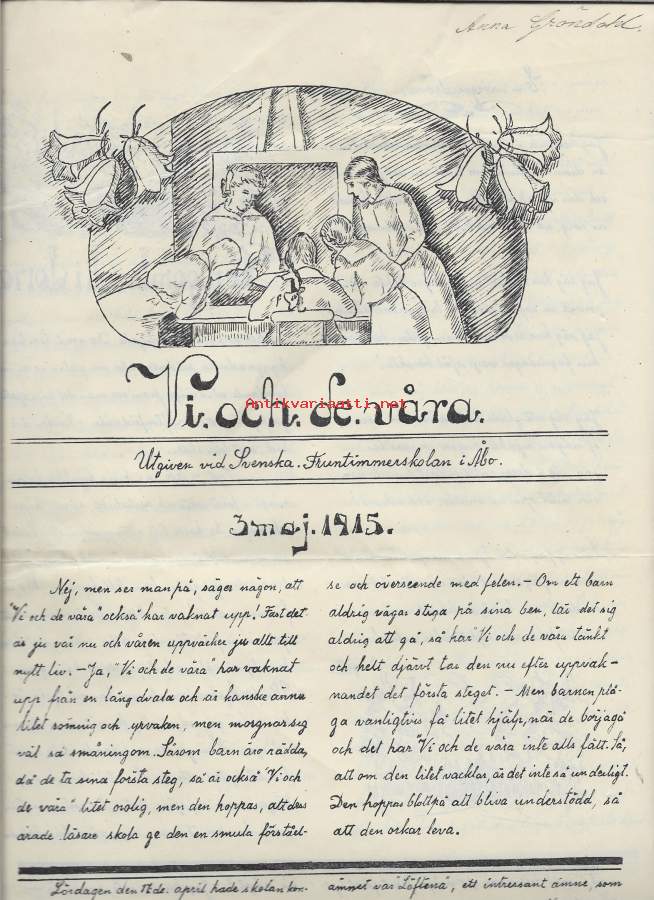 Anna Gröndahl.
Vi. och. de. våra.
Antikvariaatti.net
Utgiven vid Svenska. Fruntimmerskolan i Åbo.
3 maj. 1915.
Nej, men ser man på, säger någon, att
"Vi och de våra" också har vaknat upp! Fast det
är ju vår nu och våren uppväcker ju allt till
nytt liv. – Ja, "Vi och de våra" har vaknat
upp från en lång dvala och är kanske ännu
litet sömnig och yrvaken, men morgnar sig
väl så småningom. Såsom barn äro rädda,
då de ta sina första steg, så är också "Vi och
de våra" litet orolig, men den hoppas, att dess
ärade läsare skola ge den en smula förståel-
se och överseende med felen. – Om ett barn
aldrig vågar stiga på sina ben, lär det sig
aldrig att gå, så har "Vi och de våra tänkt
och helt djärvt tar den nu efter uppvak-
nandet det första steget. – Men barnen plä-
ga vanligtvis få litet hjälp, när de börja gå
och det har "Vi och de våra inte alls fått. Så,
att om den litet vacklar, är det inte så underligt.
Den hoppas blott på att bliva understödd, så
att den orkar leva.
Lördagen den 17de. april hade skolan kon-
ämnet var "Löftena", ett intressant ämne, som